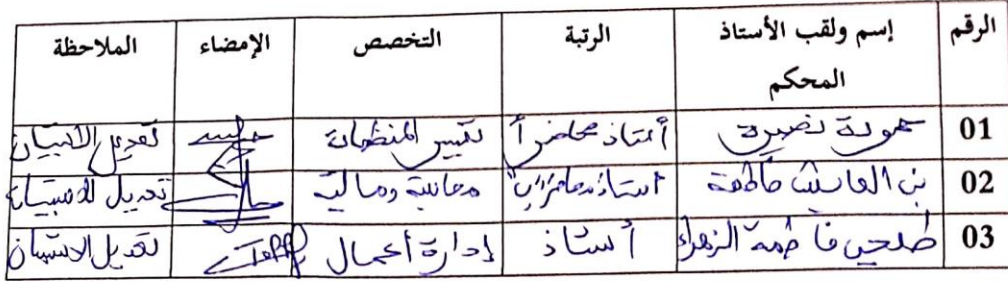 الرقم إسم ولقب الأستاذ المحكم الرتبة التخصص الإمضاء الملاحظة
01 حمودة نصيرة أستاذ محاضر أ تسيير المنظمات تعديل الاستبيان
02 بن العايش فاطمة أستاذ محاضر "ب" محاسبة ومالية تعديل الاستبيان
03 طلحي فاطمة الزهراء أستاذ إدارة أعمال تعديل الاستبيان